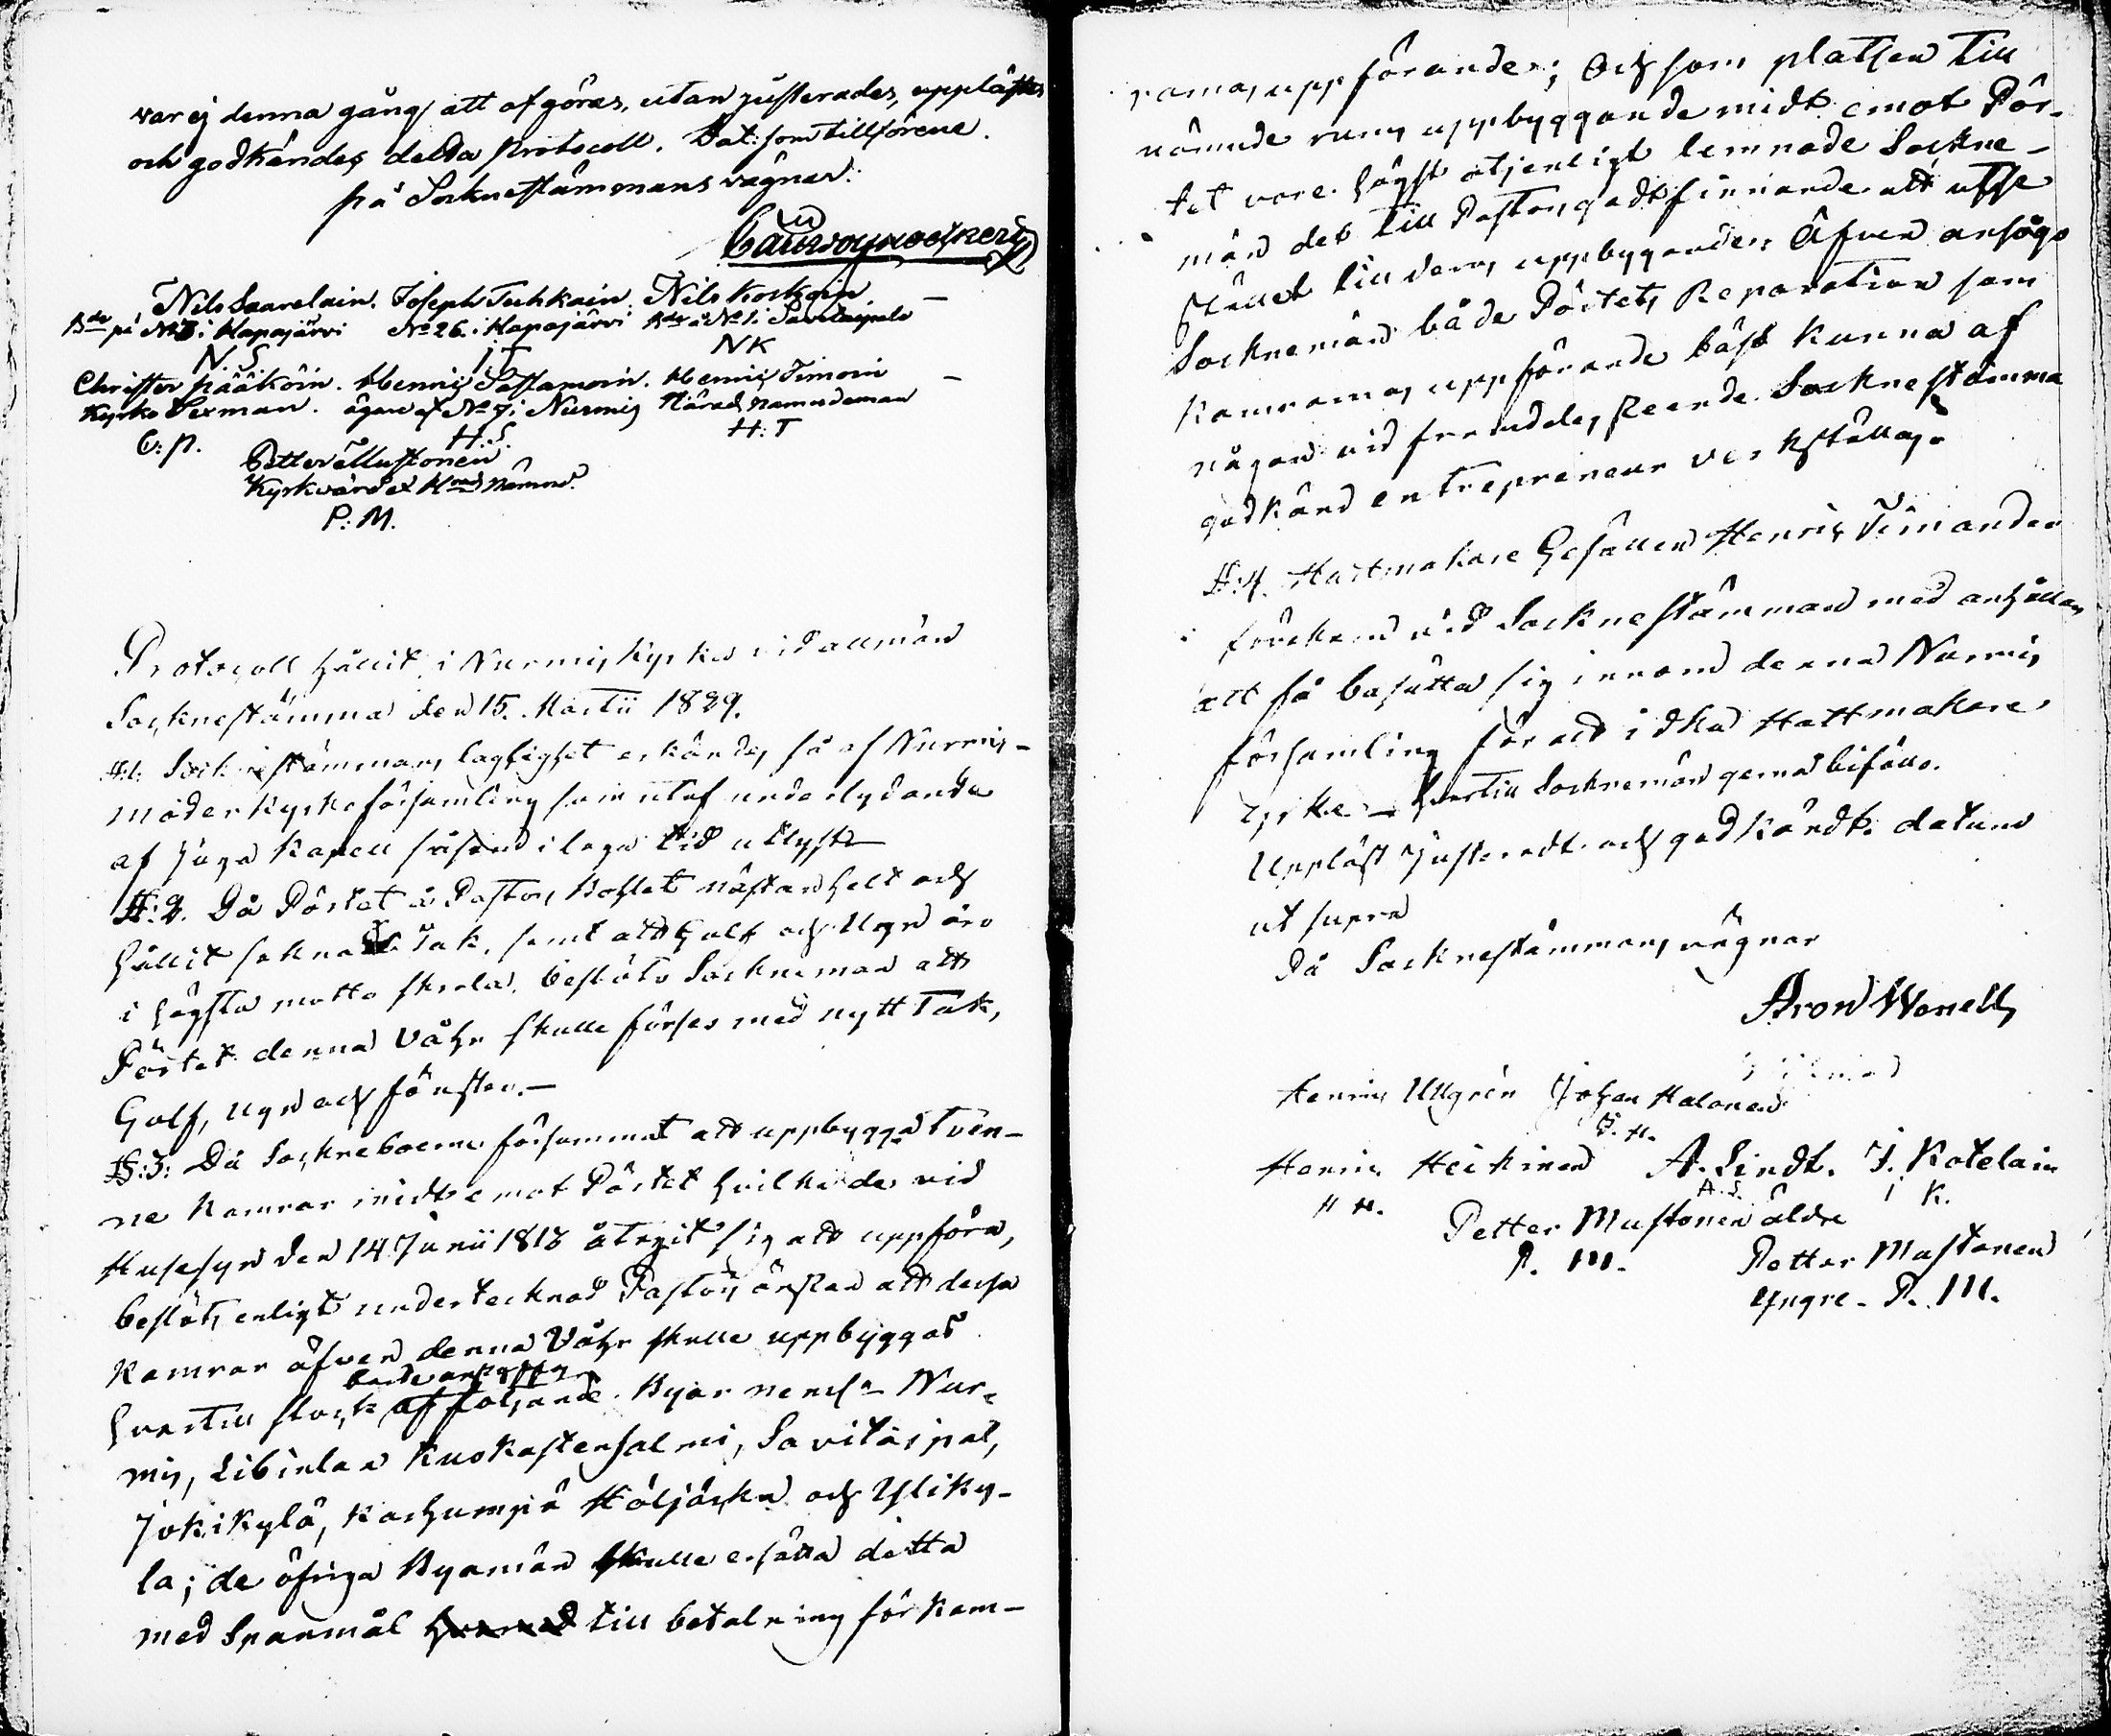 var ej denna gång att afgöras, utan justerades, upplästes
och godkändes detta Protocoll. Dat: som tillförene.
på Socknestämmans vägnar.
Nils Saarelain. Joseph Tuhkain. Nils Koskoin
Bde på No 3 i Hapajärvi No 26. i Hapajärvi Bde å No 1. i Savikaipale
N. S. J T N K
Christer Pääköin. Henric Sastamoin. Henric Timoin
Kyrko Sexman. ägare af No 7 i Nurmis Härads namndeman
C: P. H. S. H: T
Petter Mustonen
Kyrkvärd et Hrads Nämnd.
P: M.
Protocoll hållit i Nurmis Kyrka vid allmän
Socknestämma den 15. Martii 1829.
§:1. Socknestämmans laglighet erkändes så af Nurmis-
moderkyrkoförsamling som utaf underlydande
af Juga Kapell såsom i laga tid utlyst
§: 2. Då Pörtet å Pastors Bohlet nästan helt och
hållit saknade Tak, samt att Golf och Ugn äro
i högsta motto skrala, beslöto Socknemän att
Pörtet denna Våhr skulle förses med nytt Tak,
Golf, Ugn och fönster. —
§:3: Då Sockneboerne försummat att uppbygga tven-
ne Kamrar midt emot Pörtet hvilka de vid
Husesyn den 14 Junii 1818 åtagit sig att uppföra,
beslöts enligt undertecknad Pastors önskan att dessa
Kamrar äfven denna Våhr skulle uppbyggas
hvartill stock af följande Byar nemln Nur-
mis, Libinlax Kuokastensalmi, Savikaipal,
Jokikylä, Karhunpä Höljäskä och Yliky-
la; de öfriga Byamän skulle ersätta detta
med Spanmål till betalning för Kam-
rarnas uppförande; Och som platsen till
nämnde rums uppbyggande midt emot Pör-
tet vore högst otjenligt lemnade Sockne-
män det till Pastors godtfinnande att utse
Stället till deras uppbyggande. Äfven ansågo
Socknemän både Pörtets Reparation som
Kamrarnas uppförande bäst kunna af
någon vid framdeles skeende Socknestämma
godkänd entrepreneur verkställas.
§:4. Hattmakare Gesällen Henric Timander
förekom vid Socknestämman med anhållan
att få besätta sig innom denna Nurmis
församling för att idka Hattmakare
Yrke — hvartill Socknemän gerna biföllo.
Uppläst Justeradt och godkändt. datum
ut supra
På Socknestämmans vägnar
Aron Wonell,
Henric Ullgren Johan Halonen
J. H.
Henric Heikinen A. Lindt. J. Kotelain
H H. A. L. J K.
Petter Mustonen äldre
P. M. Petter Mustonen
Yngre. P. M.